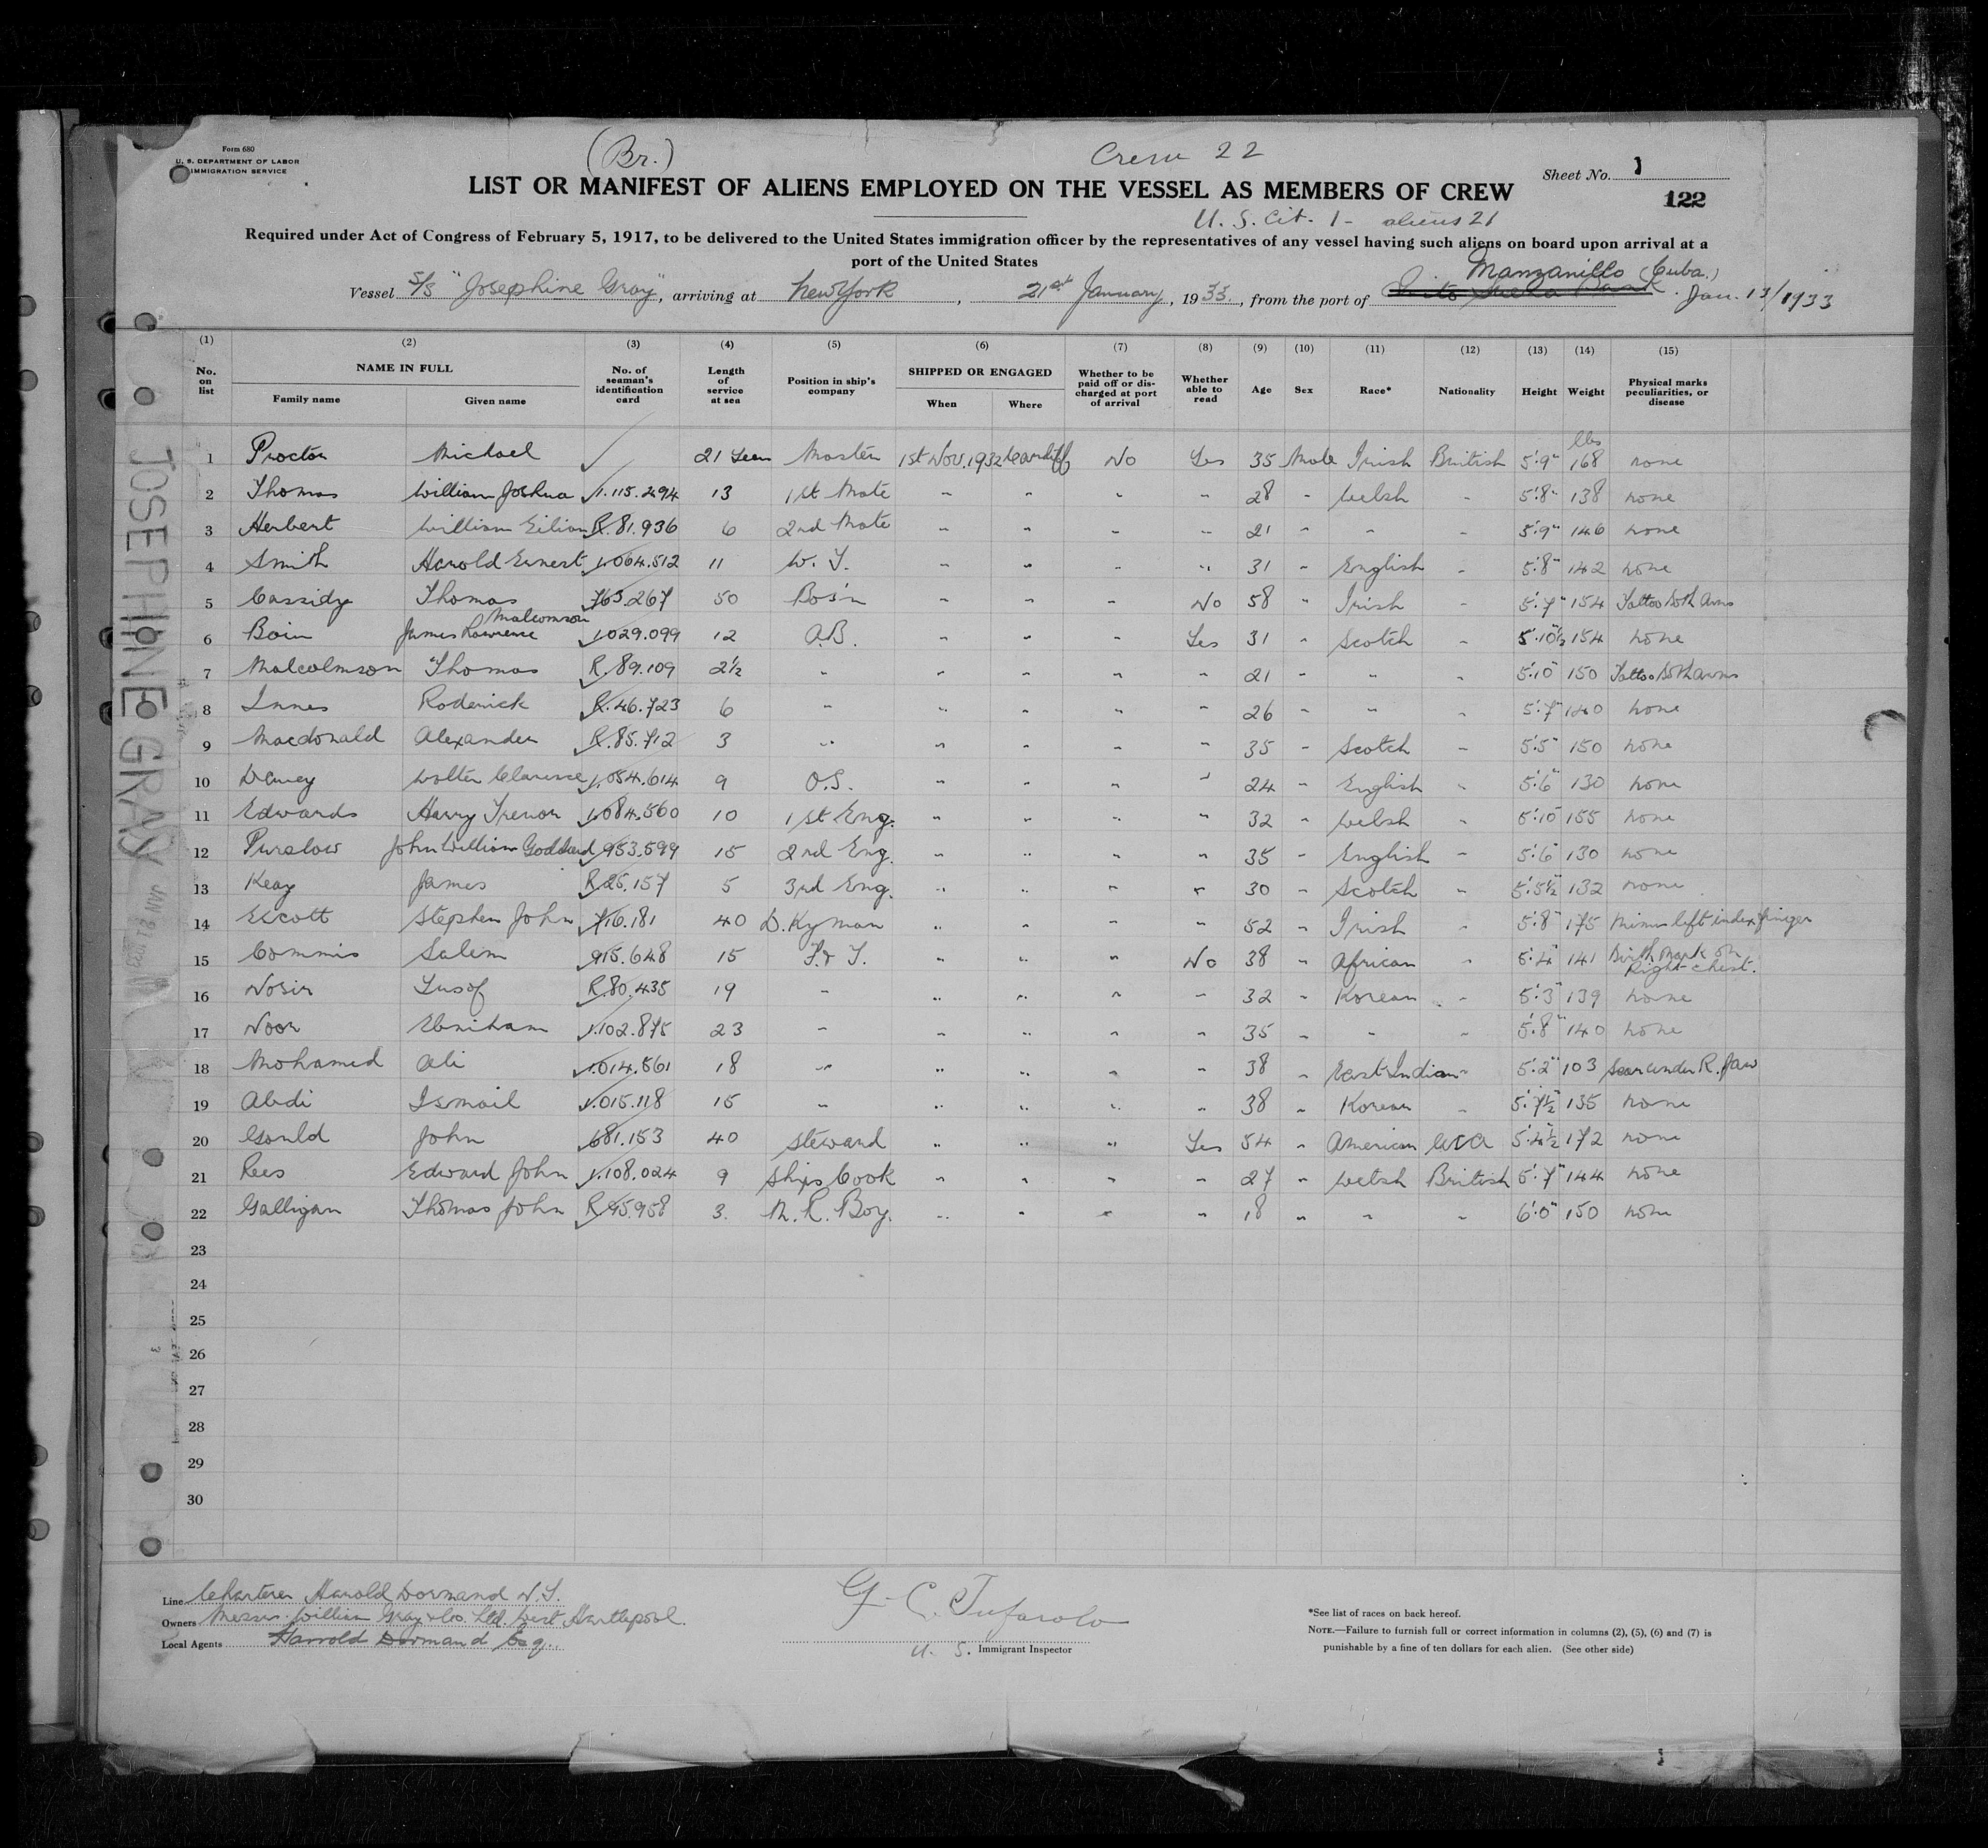 Form 680
U. S. DEPARTMENT OF LABOR
IMMIGRATION SERVICE
(Br.)
Crew 22
Sheet No. 1
LIST OR MANIFEST OF ALIENS EMPLOYED ON THE VESSEL AS MEMBERS OF CREW
122
U. S. Cit. 1 - aliens 21
Required under Act of Congress of February 5, 1917, to be delivered to the United States immigration officer by the representatives of any vessel having such aliens on board upon arrival at a
port of the United States
Manzanillo (Cuba.)
Vessel S/S "Josephine Gray", arriving at New York, 21st January, 1933, from the port of Jan. 13/1933
(1) (2) (3) (4) (5) (6) (7) (8) (9) (10) (11) (12) (13) (14) (15)
No. on list NAME IN FULL Family name Given name No. of seaman's identification card Length of service at sea Position in ship's company SHIPPED OR ENGAGED When Where Whether to be paid off or discharged at port of arrival Whether able to read Age Sex Race* Nationality Height Weight Physical marks peculiarities, or disease
lbs
1 Proctor Michael ✓ 21 Years Master 1st Nov. 1932 Cardiff No Yes 35 Male Irish British 5'9" 168 none
2 Thomas William Joshua 1.115.294 13 1st Mate " " " " 28 " Welsh " 5'8" 138 none
3 Herbert William Eilian R.81.936 6 2nd Mate " " " " 21 " " " 5'9" 146 none
4 Smith Harold Ernest 1.064.512 11 W. T. " " " " 31 " English " 5'8" 142 none
5 Cassidy Thomas 763.267 50 Bos'n " " " No 58 " Irish " 5'7" 154 Tattoo Both Arms
6 Bain James Lawrence Malcomson 1.029.099 12 A.B. " " " Yes 31 " Scotch " 5'10½ 154 none
7 Malcolmson Thomas R.89.109 2½ " " " " " 21 " " " 5'10" 150 Tattoo Both Arms
8 Innes Roderick R.46.723 6 " " " " " 26 " " " 5'7" 140 none
9 Macdonald Alexander R.85.712 3 " " " " " 35 " Scotch " 5'5" 150 none
10 Davey Walter Clarence 1.054.614 9 O.S. " " " " 24 " English " 5'6" 130 none
11 Edwards Harry Trevor 1.084.560 10 1st Eng. " " " " 32 " Welsh " 5'10" 155 none
12 Purslow John William Goddard 953.599 15 2nd Eng. " " " " 35 " English " 5'6" 130 none
13 Keay James R.25.157 5 3rd Eng. " " " " 30 " Scotch " 5'5½" 132 none
14 Escott Stephen John 716.181 40 D. Kyman " " " " 52 " Irish " 5'8" 175 minus left index finger
15 Commis Salem 915.648 15 F. & T. " " " No 38 " African " 5'4" 141 Birth Mark on Right chest.
16 Nosir Yusof R.80.435 19 " " " " " 32 " Korean " 5'3" 139 none
17 Noor Ebriham 1.102.875 23 " " " " " 35 " " " 5'8" 140 none
18 Mohamed Ali 1.014.561 18 " " " " " 38 " East Indian " 5'2" 103 Scar under R. Jaw
19 Abdi Ismail 1.015.118 15 " " " " " 38 " Korean " 5'7½" 135 none
20 Gould John 681.153 40 Steward " " " Yes 54 " American USA 5'4½" 172 none
21 Rees Edward John 1.108.024 9 Ships Cook " " " " 27 " Welsh British 5'7" 144 none
22 Galligan Thomas John R.95.958 3. M. R. Boy. " " " " 18 " " " 6'0" 150 none
23
24
25
26
27
28
29
30
JOSEPHINE GRAY
JAN 21 1933
Line Charterer Harold Dormand N.Y.
Owners Messrs. William Gray & Co. Ltd. West Hartlepool.
Local Agents Harrold Dormand Esq.
G. C. Tufarolo
U. S. Immigrant Inspector
*See list of races on back hereof.
NOTE.—Failure to furnish full or correct information in columns (2), (5), (6) and (7) is
punishable by a fine of ten dollars for each alien. (See other side)